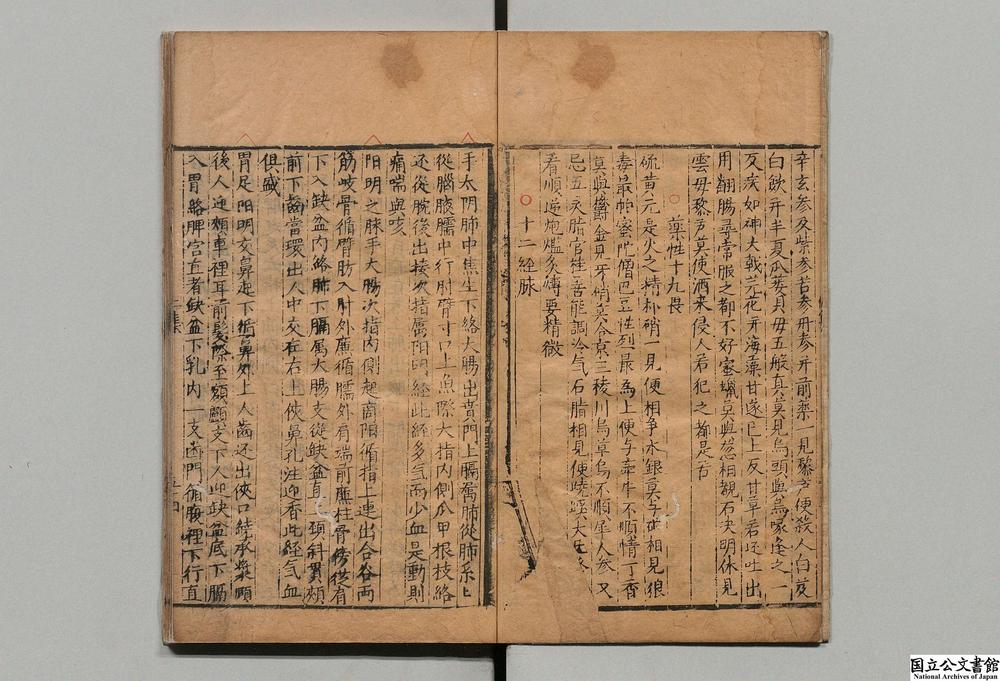 辛玄参及紫参苦参丹参并前藥一見藜芦便殺人白芨
白飲并半夏瓜蔞貝母五般真莫見烏頭與烏喙逢之一
反疾如神大戟芫花并海藻甘遂已上反甘草若还吐出
用翻腸尋常服之都不好蜜蠟莫與葱相覩石决明休見
雲母藜芦莫使酒来侵人若犯之都是苦
藥性十九畏
硫黄元是火之精朴硝一見便相争水銀莫与砒相見狼
毒最怕蜜陀僧巴豆性列最為上便与牽牛不順情丁香
莫與欝金見牙硝莫合京三稜川烏草烏不順犀人参又
忌五灵脂官桂善能調冷气石脂相見便
看順逆炮爁炙煿要精微
十二経脉
手太阴肺中焦生下絡大腸出賁門上膈属肺從肺系上
從腦腋臑中行肘臂寸口上魚際大指内側爪甲根枝絡
还從腕後出接次指属阳明經此経多气而少血是動則
痛喘與咳
阳明之脉手大腸次指内側起商阳循指上連出合谷両
筋岐骨循臂肪入肘外廉循臑外肩端前廉柱骨傍従肩
下入缺盆内絡肺下膈属大腸支從缺盆直上頚斜貫頰
前下齒當環出人中交左右上侠鼻孔注迎香此経气血
俱盛
胃足阳明交鼻起下循鼻外上入齒还出侠口繞承漿頤
後大迎頰車裡耳前髮際至額顱支下人迎缺盆底下膈
入胃絡脾宫直者缺盆下乳内一支幽門循腹裡下行直
国立公文書館
National Archives of Japan